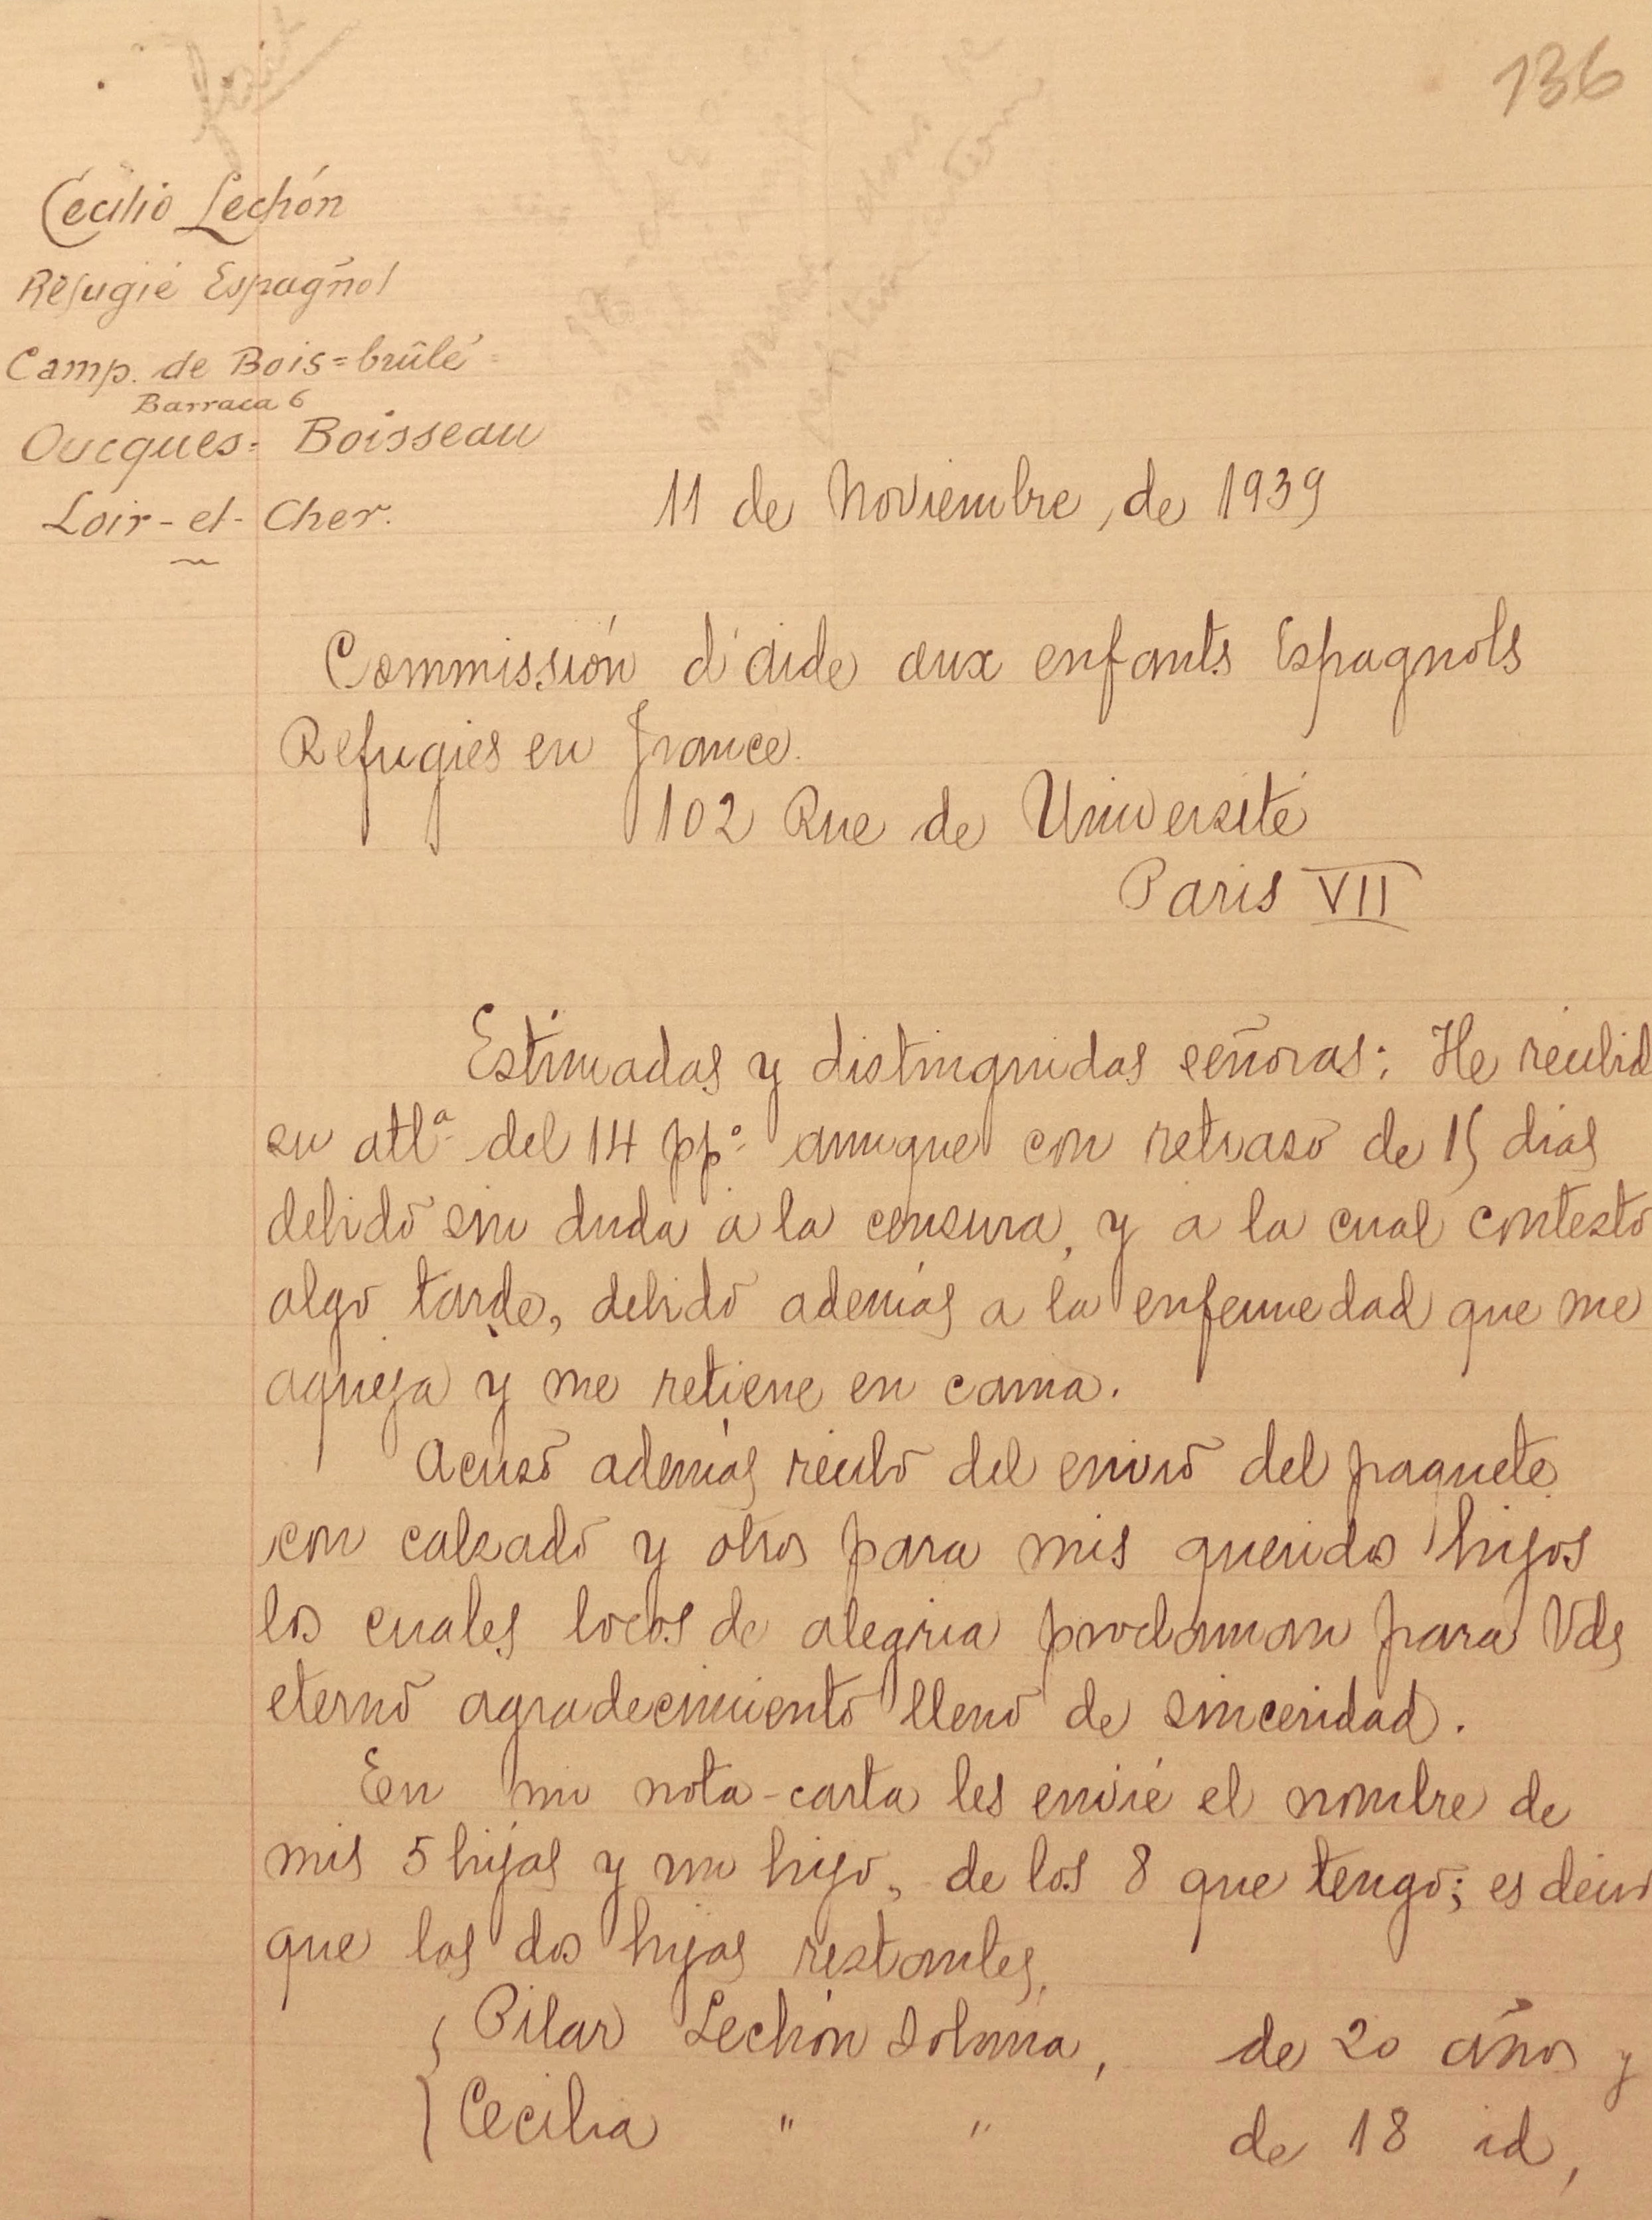 136
Cecilio Lechón
Réfugié Espagñol
Camp. de Bois=brûlé
Barraca 6
Oucques=Boisseau
Loir-et-Cher.
11 de Noviembre, de 1939
Commissión d'aide aux enfants Espagnols
Refugies en france.
102 Rue de Université
Paris VII
Estimadas y distinguidas señoras: He recibid
su atlª del 14 ppº aunque con retraso de 15 dias
debido sin duda a la censura, y a la cual contesto
algo tarde, debido además a la enfermedad que me
aqueja y me retiene en cama.
Acuso además recibo del envio del paquete
con calzado y otros para mis queridos hijos
los cuales locos de alegria proclaman para Vds
eterno agradecimiento lleno de sinceridad.
En mi nota-carta les envié el nombre de
mis 5 hijas y un hijo, de los 8 que tengo; es decir
que las dos hijas restantes,
Pilar Lechón , de 20 años y
Cecilia " " de 18 id,